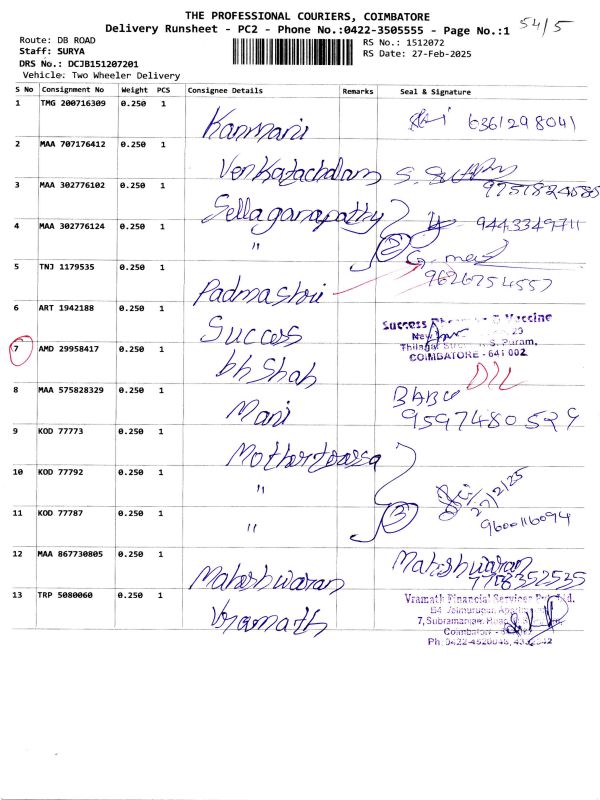 THE PROFESSIONAL COURIERS, COIMBATORE
Delivery Runsheet - PC2 - Phone No.:0422-3505555 - Page No.:1
54/5
Route: DB ROAD
RS No.: 1512072
Staff: SURYA
RS Date: 27-Feb-2025
DRS No.: DCJB151207201
Vehicle: Two Wheeler Delivery
S No Consignment No Weight PCS Consignee Details Remarks Seal & Signature
1 TMG 200716309 0.250 1 Kanmani 6361298041
2 MAA 707176412 0.250 1 Venkatachalam
3 MAA 302776102 0.250 1 Sellaganapathy
4 MAA 302776124 0.250 1 " 2 9443349711
5 TNJ 1179535 0.250 1 Padmashri 9626754557
6 ART 1942188 0.250 1 Success
Success Vaccine
New 23
Thilagar R.S. Puram,
COIMBATORE - 641 002
7 AMD 29958417 0.250 1 bh Shah D/L
8 MAA 575828329 0.250 1 Mani BABU
9597480529
9 KOD 77773 0.250 1
10 KOD 77792 0.250 1 " 27/2/25
11 KOD 77787 0.250 1 " 3 9600116094
12 MAA 867730805 0.250 1 Maheshwaran Maheshwaran
7708352535
13 TRP 5080060 0.250 1 Vramath
Vramath Financial Services Pvt Ltd.
7, Subramaniam
Coimbatore
Ph: 0422-4520048,